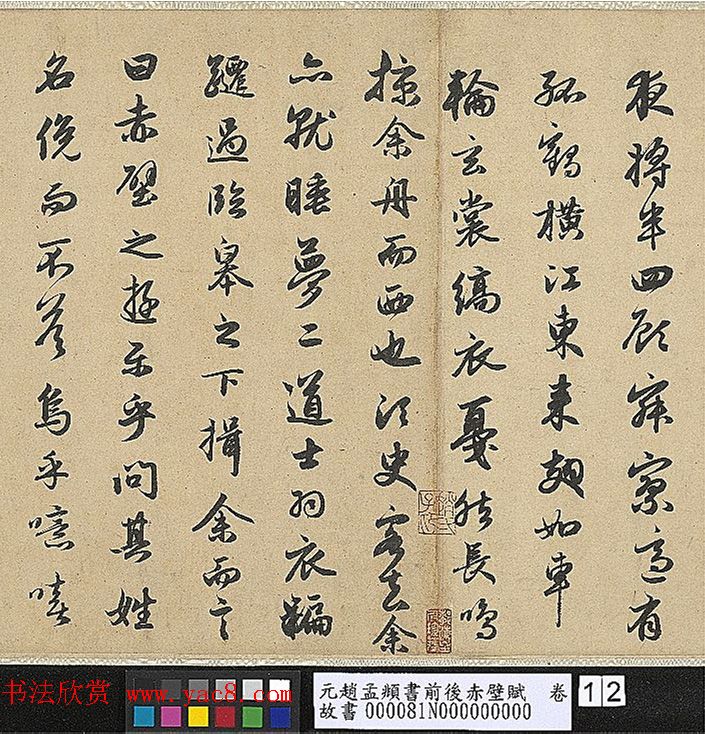 夜將半四顧寂寥適有
孤鶴橫江東來翅如車
輪玄裳縞衣戛然長鳴
掠余舟而西也須臾客去余
亦就睡夢二道士羽衣蹁
躚過臨皋之下揖余而言
曰赤壁之遊樂乎問其姓
名俛而不答烏乎噫嘻
趙氏子昂
书法欣赏 www.yac8.com
元趙孟頫書前後赤壁賦 卷 12
故書 000081N000000000